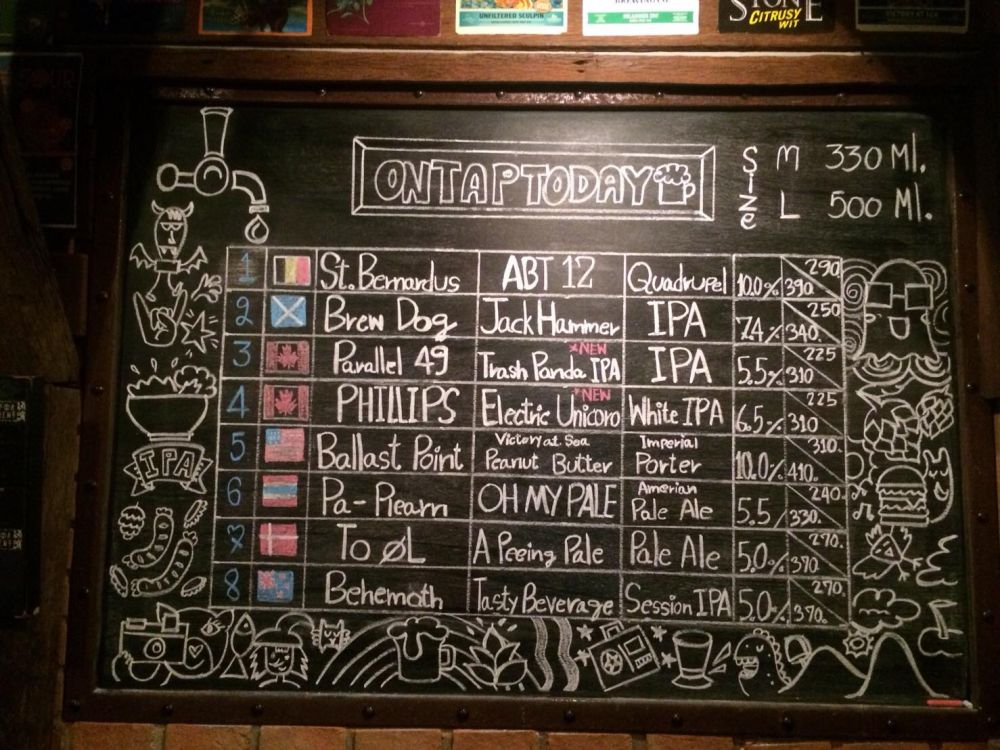 UNFILTERED SCULPIN
STONE
CITRUSY
WIT
ON TAP TODAY
SIZE M 330 Ml.
L 500 Ml.
1 St. Bernardus ABT 12 Quadrupel 10.0% 290 390.
2 Brew Dog Jack Hammer IPA 7.4% 250 340.
3 Parallel 49 Trash Panda IPA *NEW IPA 5.5% 225 310
4 PHILLIPS Electric Unicorn *NEW White IPA 6.5% 225 310
5 Ballast Point Victory at Sea Peanut Butter Imperial Porter 10.0% 310. 410.
6 Pa-Plearn OH MY PALE Amerian Pale Ale 5.5 240. 330.
7 To ØL A Peeing Pale Pale Ale 5.0% 270. 370.
8 Behemoth Tasty Beverage Session IPA 5.0% 270. 370.
IPA